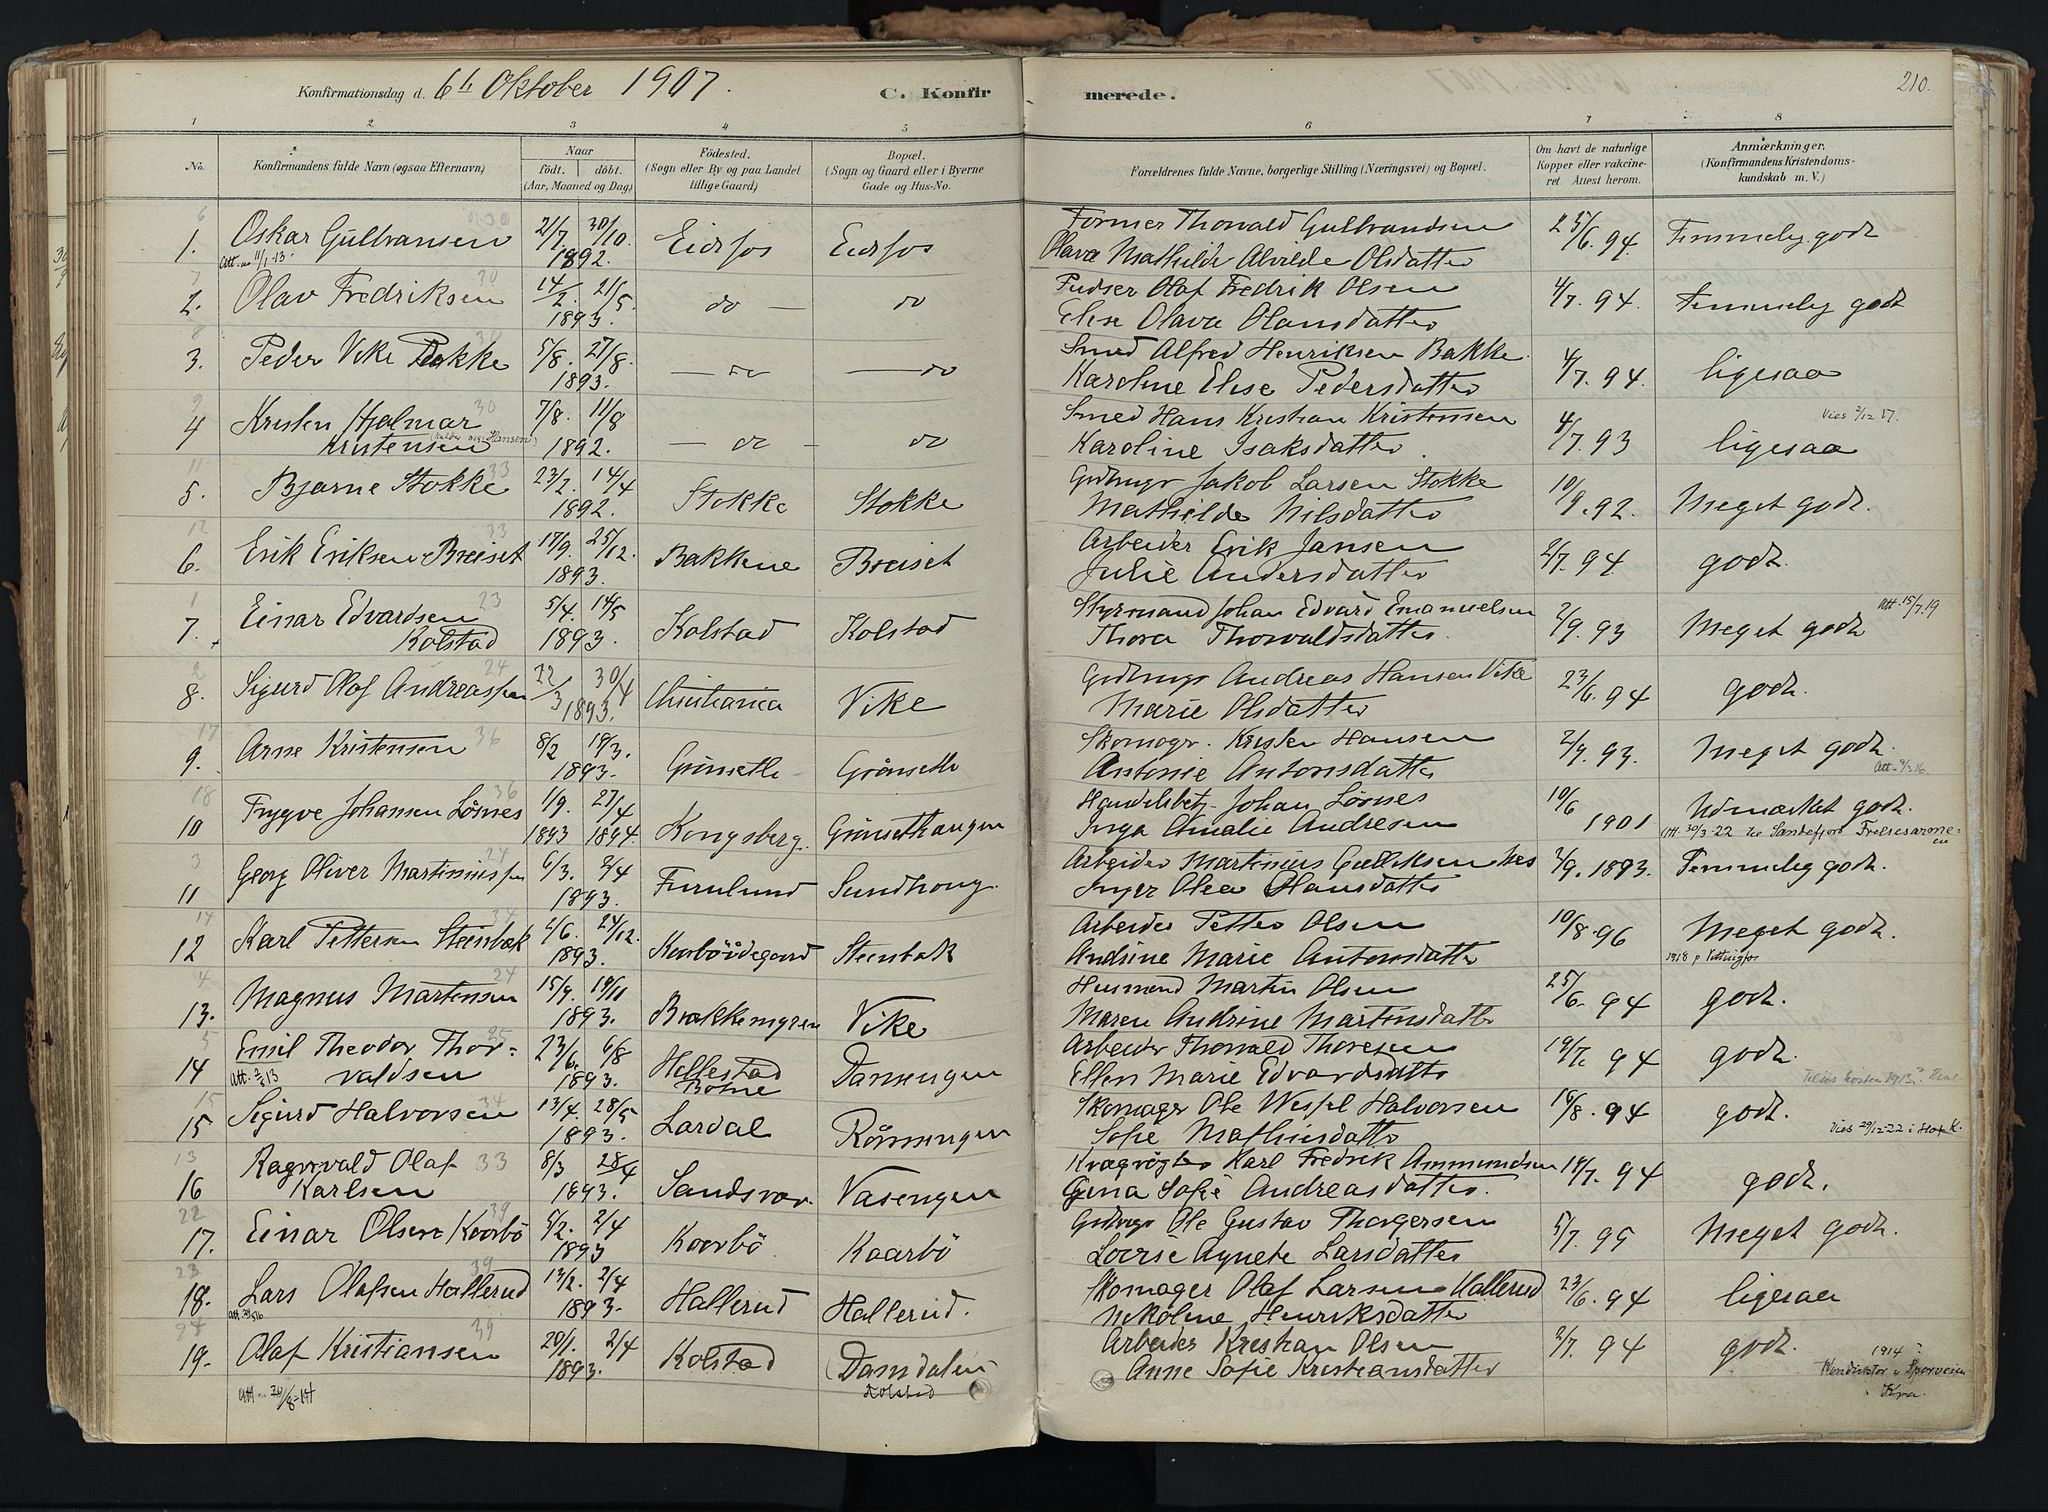 Konfirmationsdag d. 6te Oktober 1907. C. Konfir merede. 210.
1 2 3 4 5 6 7 8
No. Konfirmandens fulde Navn (ogsaa Efternavn) Naar født. døbt. (Aar, Maaned og Dag) Födested. (Sogn eller By og paa Landet tillige Gaard) Bopæl. (Sogn og Gaard eller i Byerne Gade og Hus-No. Forældrenes fulde Navne, borgerlige Stilling (Næringsvei) og Bopæl. Om havt de naturlige Kopper eller vakcineret. Attest herom. Anmærkninger. (Konfirmandens Kristendomskundskab m. V.)
1. Oskar Gulbransen 21/7. 30/10. Eidsfos Eidsfos Former Thorvald Gulbrandsen 25/6. 94. Temmelig godt
Att. 11/1-13. 1892. Olava Mathilde Alvilde Olsdatter
2. Olav Fredriksen 14/2. 21/5. do do Pudser Olaf Fredrik Olsen 4/7. 94. Temmelig godt
1893. Elise Olava Olausdatter
3. Peder Vike Bakke 5/8. 27/8. do do Smed Alfred Henriksen Bakke. 4/7. 94. ligesaa
1893. Karoline Elise Pedersdatter
4 Kristen Hjalmar 7/8. 11/8 do do Smed Hans Kristian Kristensen 4/7. 93 ligesaa Vies 2/12 17.
Kristensen (kalder sig Hansen) 1892. Karoline Isaksdatter.
5. Bjarne Stokke 23/2. 14/4 Stokke Stokke Gdbrugr Jakob Larsen Stokke 10/9. 92. Meget godt.
1892. Mathilde Nilsdatter
6. Erik Eriksen Breiset 17/9. 25/12. Bakkene Breiset Arbeider Erik Jansen 2/7. 94. godt.
1893. Julie Andersdatter
7. Einar Edvardsen 5/4. 14/5 Kolstad Kolstad Styrmand Johan Edvard Emanuelsen 2/9. 93 Meget godt Att. 15/7.19
Kolstad 1893. Thora Thorvaldsdatter.
8. Sigurd Olaf Andreassen 22/3 30/4 Christiania Vike Gdbrugr Andreas Hansen Vike 23/6. 94 godt.
1893. Marie Olsdatter
9. Arne Kristensen 8/2 19/3. Grönseth Grönseth Skomagr. Kristen Hansen 2/9. 93. Meget godt.
1893. Antonie Antonsdatter Att. 9/3 16.
10 Trygve Johansen Lösnes 1/9. 27/4 Kongsberg. Grönsethaugen Handelsbetj. Johan Lösnes 10/6 1901 Udmærket godt.
1893 1894. Inga Amalie Andresen Att. 30/3-22 til Sandefjord Frelsesarmeen
11 Georg Oliver Martiniussen 6/3. 2/4 Furulund Sundhaug. Arbeider Martinius Gulliksen Næs 2/9. 1893. Temmelig godt.
1893. Inger Olea Hansdatter
12 Karl Pettersen Stenbæk 2/6. 24/12. Korbödegaard Stenbæk Arbeider Petter Olsen 10/8.96 Meget godt.
1893. Andrine Marie Antonsdatter 1918 p Vittingfos
13. Magnus Martinsen 15/9. 19/11 Bakkemyren Vike Husmand Martin Olsen 25/6. 94 godt.
1893. Maren Andrine Martinsdatter
14 Emil Theodor Thor= 23/6. 6/8 Hillestad Damengen Arbeider Thorvald Thoresen 19/7. 94 godt.
valdsen 1893. Botne Ellen Marie Edvardsdatter
15 Sigurd Halvorsen 13/4. 28/5 Lardal Rönnengen Skomager Ole Wessel Halvorsen 16/8. 94 godt.
1893. Sofie Mathiasdatter Vies 29/12-22 i Hof K.
16 Ragnvald Olaf 8/3 28/4 Sandsvær. Vasengen Kvægrögter Karl Fredrik Ammundsen 14/7. 94 godt.
Karlsen 1893. Gina Sofie Andreasdatter.
17. Einar Olsen Kaarbö 5/2. 2/4 Kaarbö Kaarbö Gdbrugr Ole Gustav Thorgersen 5/7. 95 Meget godt.
1893 Lovise Agnete Larsdatter
18. Lars Olafsen Hallerud 13/2. 2/4 Hallerud Hallerud. Skomager Olaf Larsen Hallerud 23/6. 94 ligesaa
1893. Nikoline Henriksdatter
19. Olaf Kristiansen 20/1. 2/4 Kolstad (Damdalen) Arbeider Kristian Olsen 2/7. 94 godt.
1893. Kolstad Anne Sofie Kristiansdatter 1914 ?
Konduktør v Sporveien
Kra.